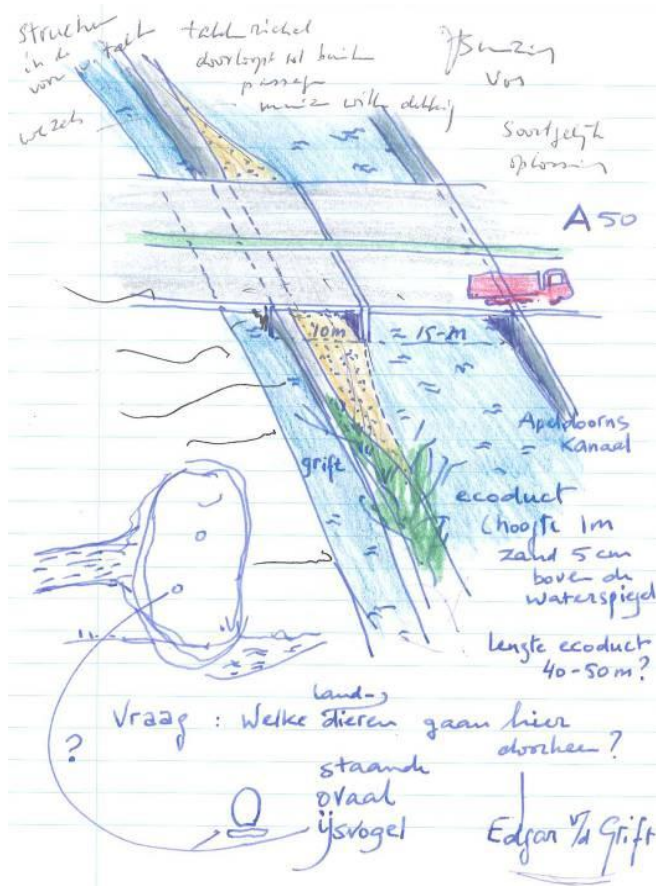 structuur
in de
vorm v. takk
wezels
takken richel
doorloopt tot buiten
passage
dekking
Bunzing
Vos
Soortgelijk
oplossing
A50
10m
≈ 15-M
Apeldoorns
Kanaal
grift
ecoduct
(hoogte 1m
zand 5 cm
boven de
waterspiegel
lengte ecoduct
40-50m?
Vraag : Welke land- dieren gaan hier
doorheen?
?
staande
ovaal
ijsvogel
Edgar v/d Grift